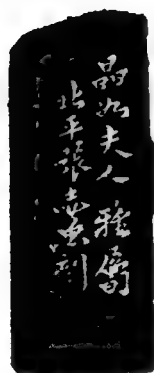 晶如夫人雅屬
北平張志魚刻